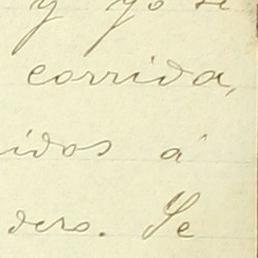 y yo si
corrida,
idos á
ders. Se